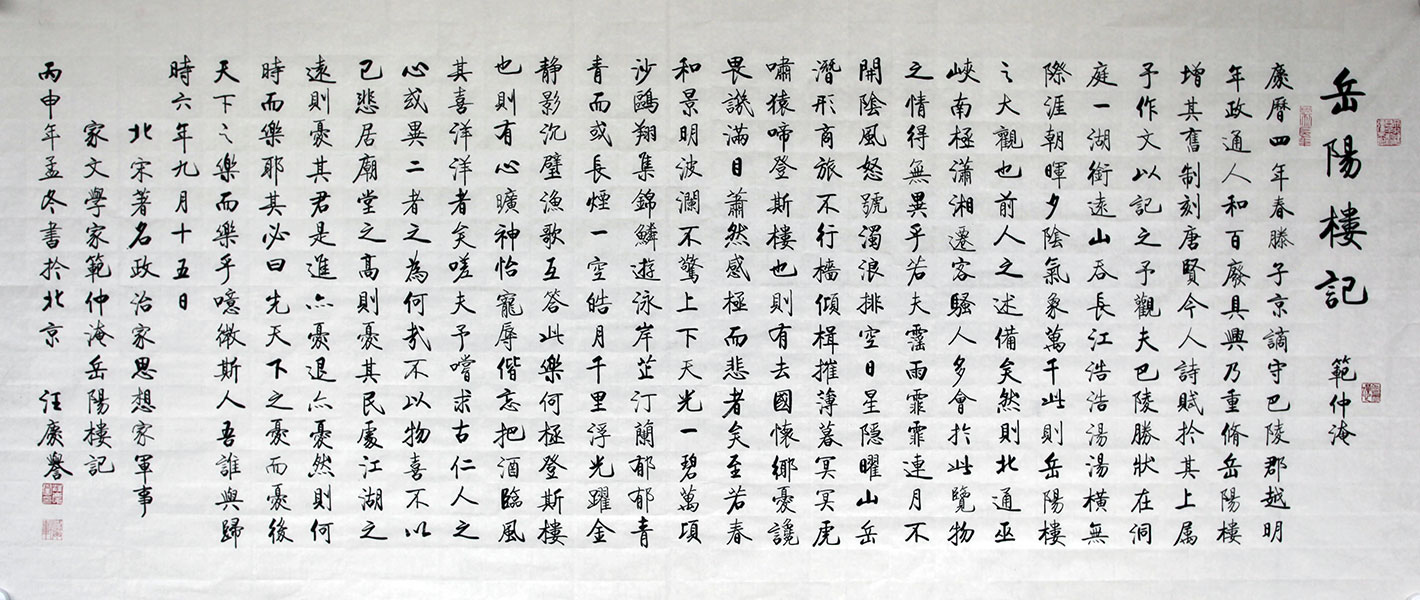 岳陽樓記
範仲淹
慶曆四年春滕子京謫守巴陵郡越明
年政通人和百廢具興乃重脩岳陽樓
增其舊制刻唐賢今人詩賦於其上属
予作文以記之予觀夫巴陵勝狀在洞
庭一湖銜遠山吞長江浩浩湯湯橫無
際涯朝暉夕陰氣象萬千此則岳陽樓
之大觀也前人之述備矣然則北通巫
峽南極瀟湘遷客騷人多會於此覽物
之情得無異乎若夫霪雨霏霏連月不
開陰風怒號濁浪排空日星隱曜山岳
潛形商旅不行檣傾楫摧薄暮冥冥虎
嘯猿啼登斯樓也則有去國懷鄉憂讒
畏譏滿目蕭然感極而悲者矣至若春
和景明波瀾不驚上下天光一碧萬頃
沙鷗翔集錦鱗遊泳岸芷汀蘭郁郁青
青而或長煙一空皓月千里浮光躍金
静影沉璧漁歌互答此樂何極登斯樓
也則有心曠神怡寵辱偕忘把酒臨風
其喜洋洋者矣嗟夫予嘗求古仁人之
心或異二者之為何哉不以物喜不以
己悲居廟堂之高則憂其民處江湖之
遠則憂其君是進亦憂退亦憂然則何
時而樂耶其必曰先天下之憂而憂後
天下之樂而樂乎噫微斯人吾誰與歸
時六年九月十五日
北宋著名政治家思想家軍事
家文學家範仲淹岳陽樓記
丙申年孟冬書於北京 汪廣譽